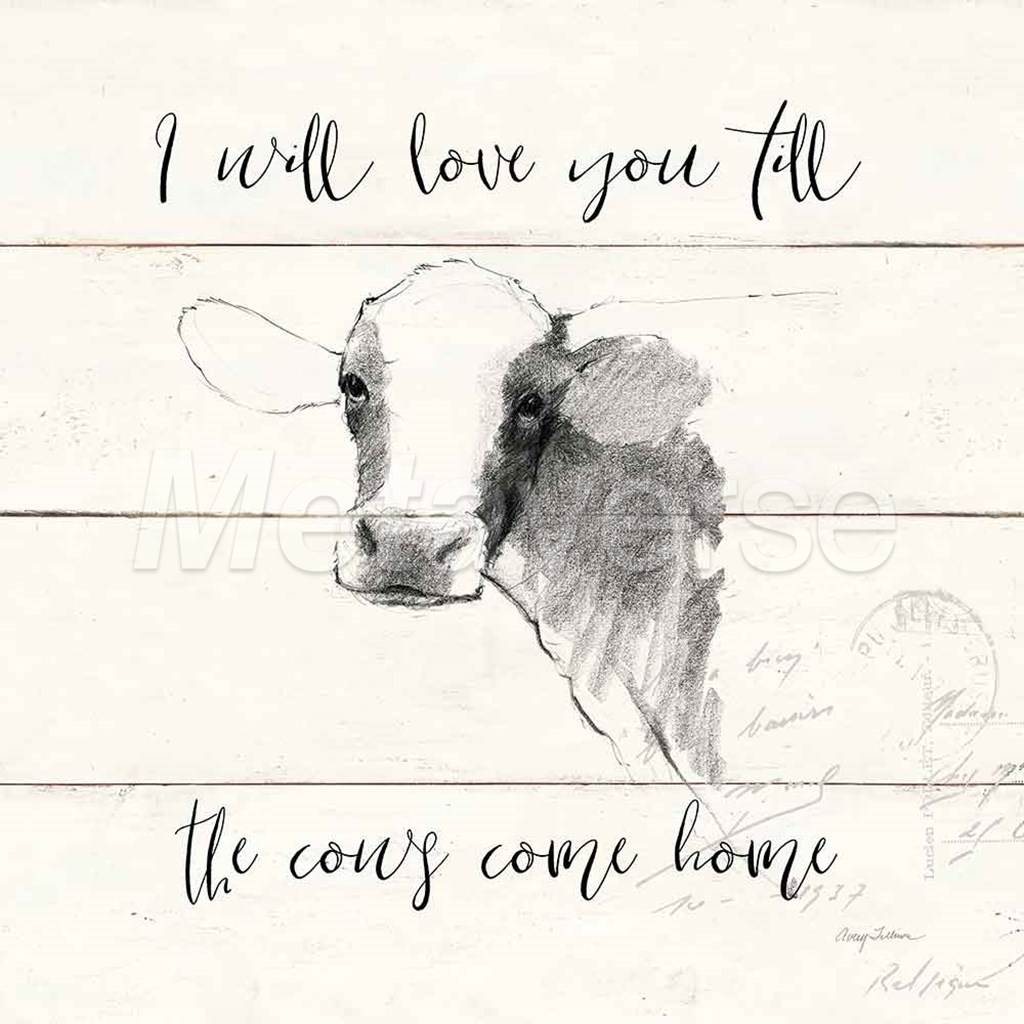 I will love you till
Metaverse
the cows come home
1937
Avery Tillmon